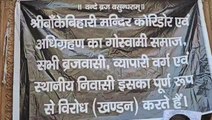 ॥ वन्दे ब्रज वसुन्धराम् ॥
श्रीबाँकेबिहारी मन्दिर कॉरिडोर एवं
अधिग्रहण का गोस्वामी समाज,
सभी ब्रजवासी, व्यापारी वर्ग एवं
स्थानीय निवासी इसका पूर्ण रूप
से विरोध (खण्डन) करते हैं।